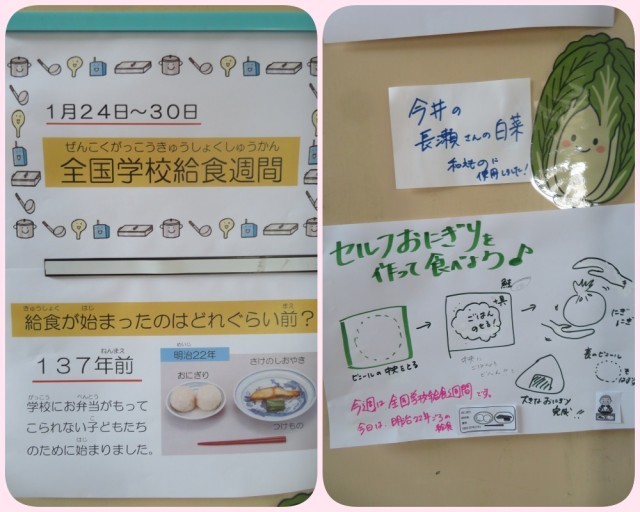 1月24日～30日
ぜんこくがっこうきゅうしょくしゅうかん
全国学校給食週間
きゅうしょく はじ まえ
給食が始まったのはどれぐらい前？
ねんまえ
137年前
がっこう べんとう
学校にお弁当がもって
こ
こられない子どもたち
はじ
のために始まりました。
めいじ
明治22年
おにぎり
さけのしおやき
つけもの
今井の
長瀬さんの白菜
和えものに
使用しました！
セルフおにぎりを
作って食べよう♪
ビニールの中央をとる
鮭
ごはん
のせる！
+具
にぎ
にぎ
大きなおにぎり
完成！！
今週は全国学校給食週間です。
今日は、明治22年ごろの
給食